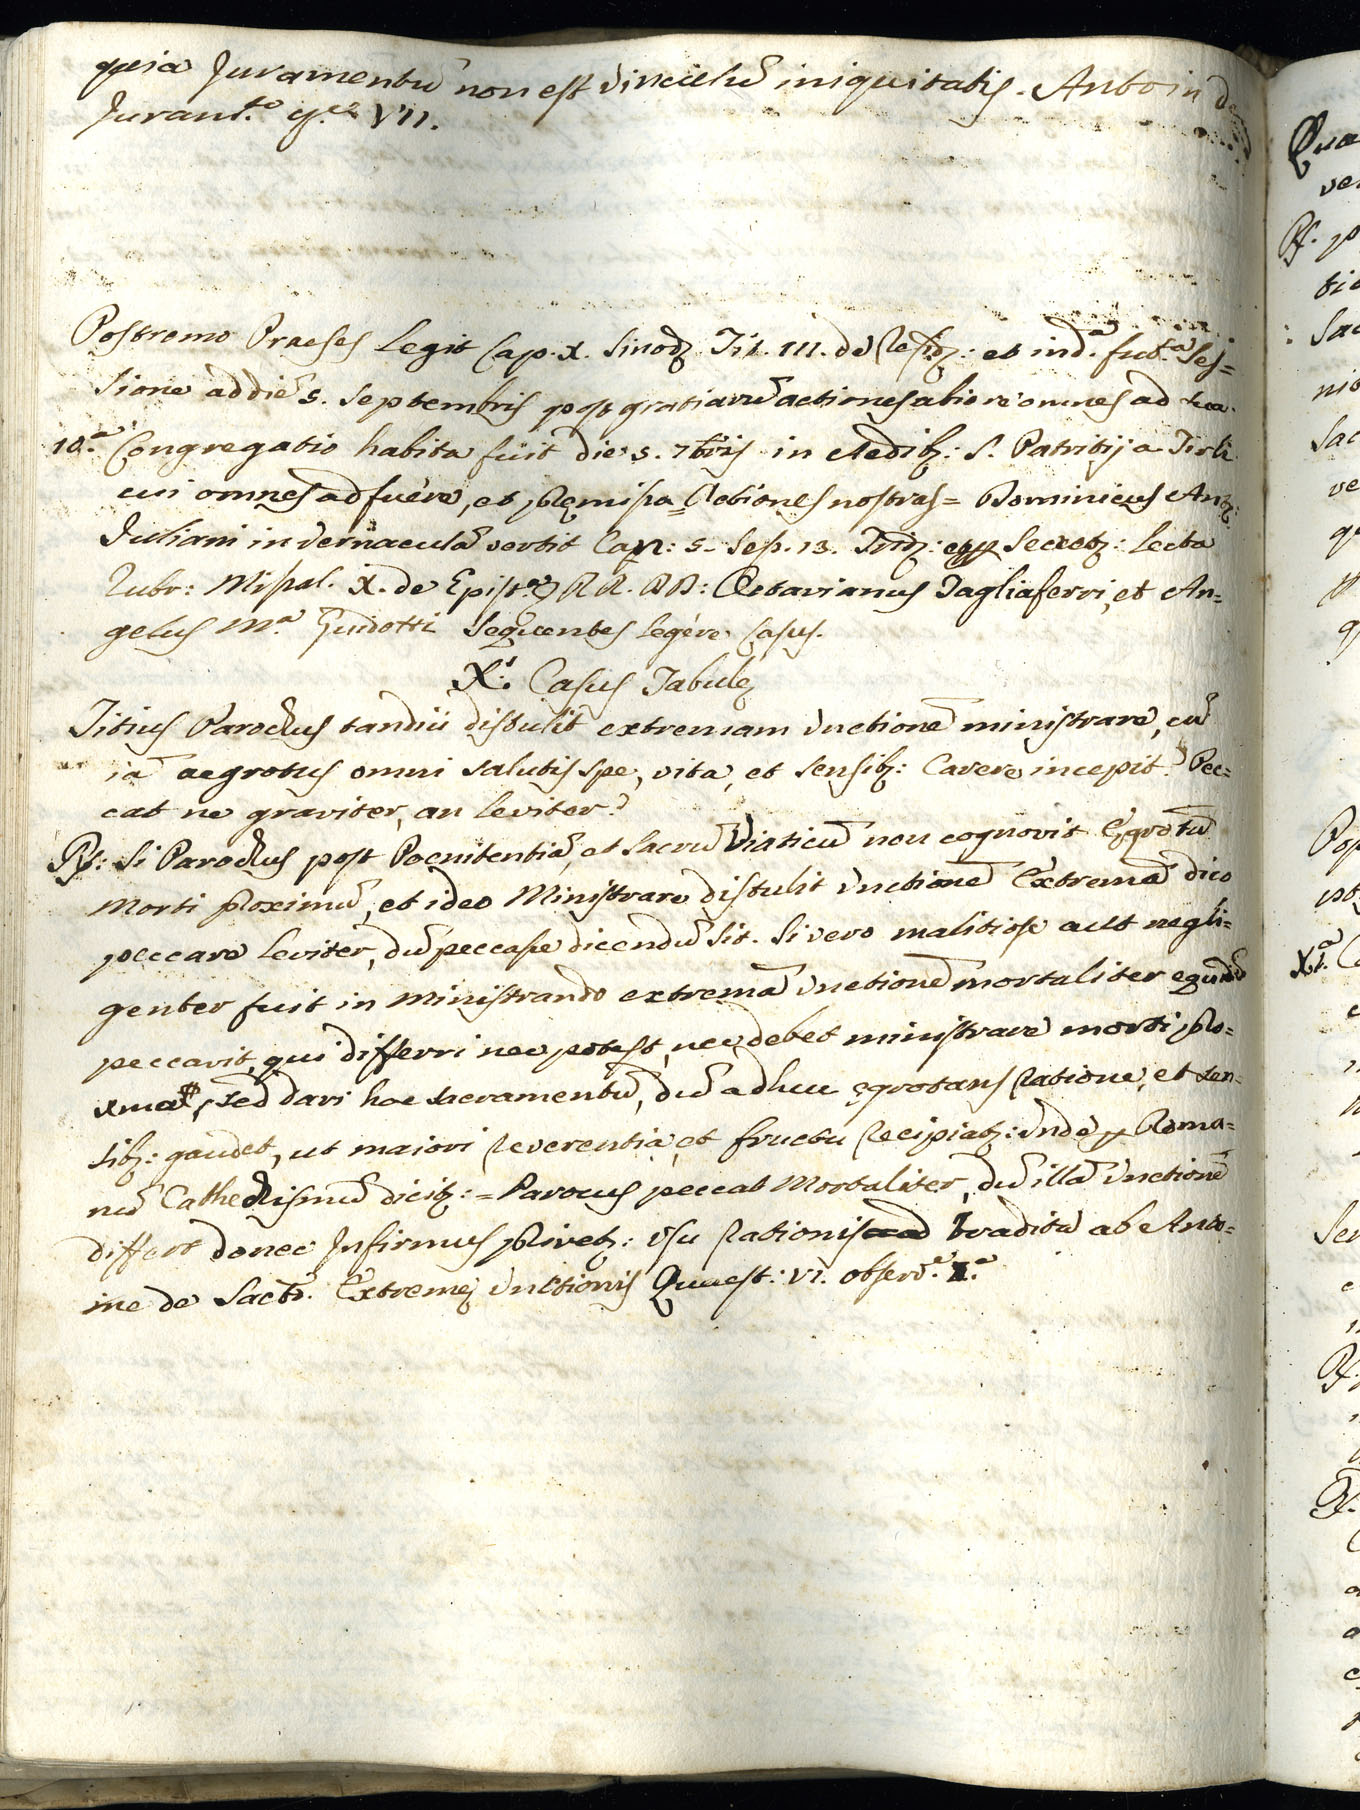 quia Juramentũ non est vinculũ iniquitatis. Antoin de
Juram.to q.es VII.
Postremo Praeses legit Cap. X. Sinodi Tit. III. de Resid: et ind.a fut.a Ses=
sione ad diẽ 5. Septembris post gratiarũ actiones abiore omnes ad sua.
10.a Congregatio habita fuit die 5. 7bris in Aedib: S. Patritij a Tirli
cui omnes adfuére, et p̃emissa = Actiones nostras = Dominicus Ang:
Juliani in vernaculã vertit Cap: 5. Ses. 13. Trid: Secret: Lecta
Rubr: Missal. X. de Epist.a RR. DD: Octavianus Tagliaferri, et An=
gelus M.a Guidotti Sequentes legére Casus.
X.s Casus Tabulę
Titius Parochus tandiu distulit extremam Unctionẽ ministrare, cũ
iã aegrotus omni salutis spe, vita, et sensib: Carere incepit? Pec=
cat ne graviter, an leviter?
R: Si Parochus post Poenitentiã, et Sacrũ Viaticũ non cognovit Ęgrotũ
Morti proximũ, et ideo Ministrare distulit Unctionẽ Extremã dico
peccare leviter, dũ peccasse dicendũ sit. Si vero malitiose aut negli=
genter fuit in ministrando extremã Unctionẽ mortaliter equidẽ
peccavit, qui differri nec potest, nec debet ministrare morti pro=
xima, sed dari hoc sacramentũ, dũ adhuc ęgrotans ratione, et sen=
sib: gaudet, ut maiori reverentia, et fructu recipiat: Unde p Roma=
nũ Cathechismũ dicit: = Parocus peccat Mortaliter, dũ illã Unctionẽ
differt donec Infirmus privet: usu rationis tradita ab Anto=
ine de Sact.o Extremę Unctionis Quaest: VI. observ.e I.a